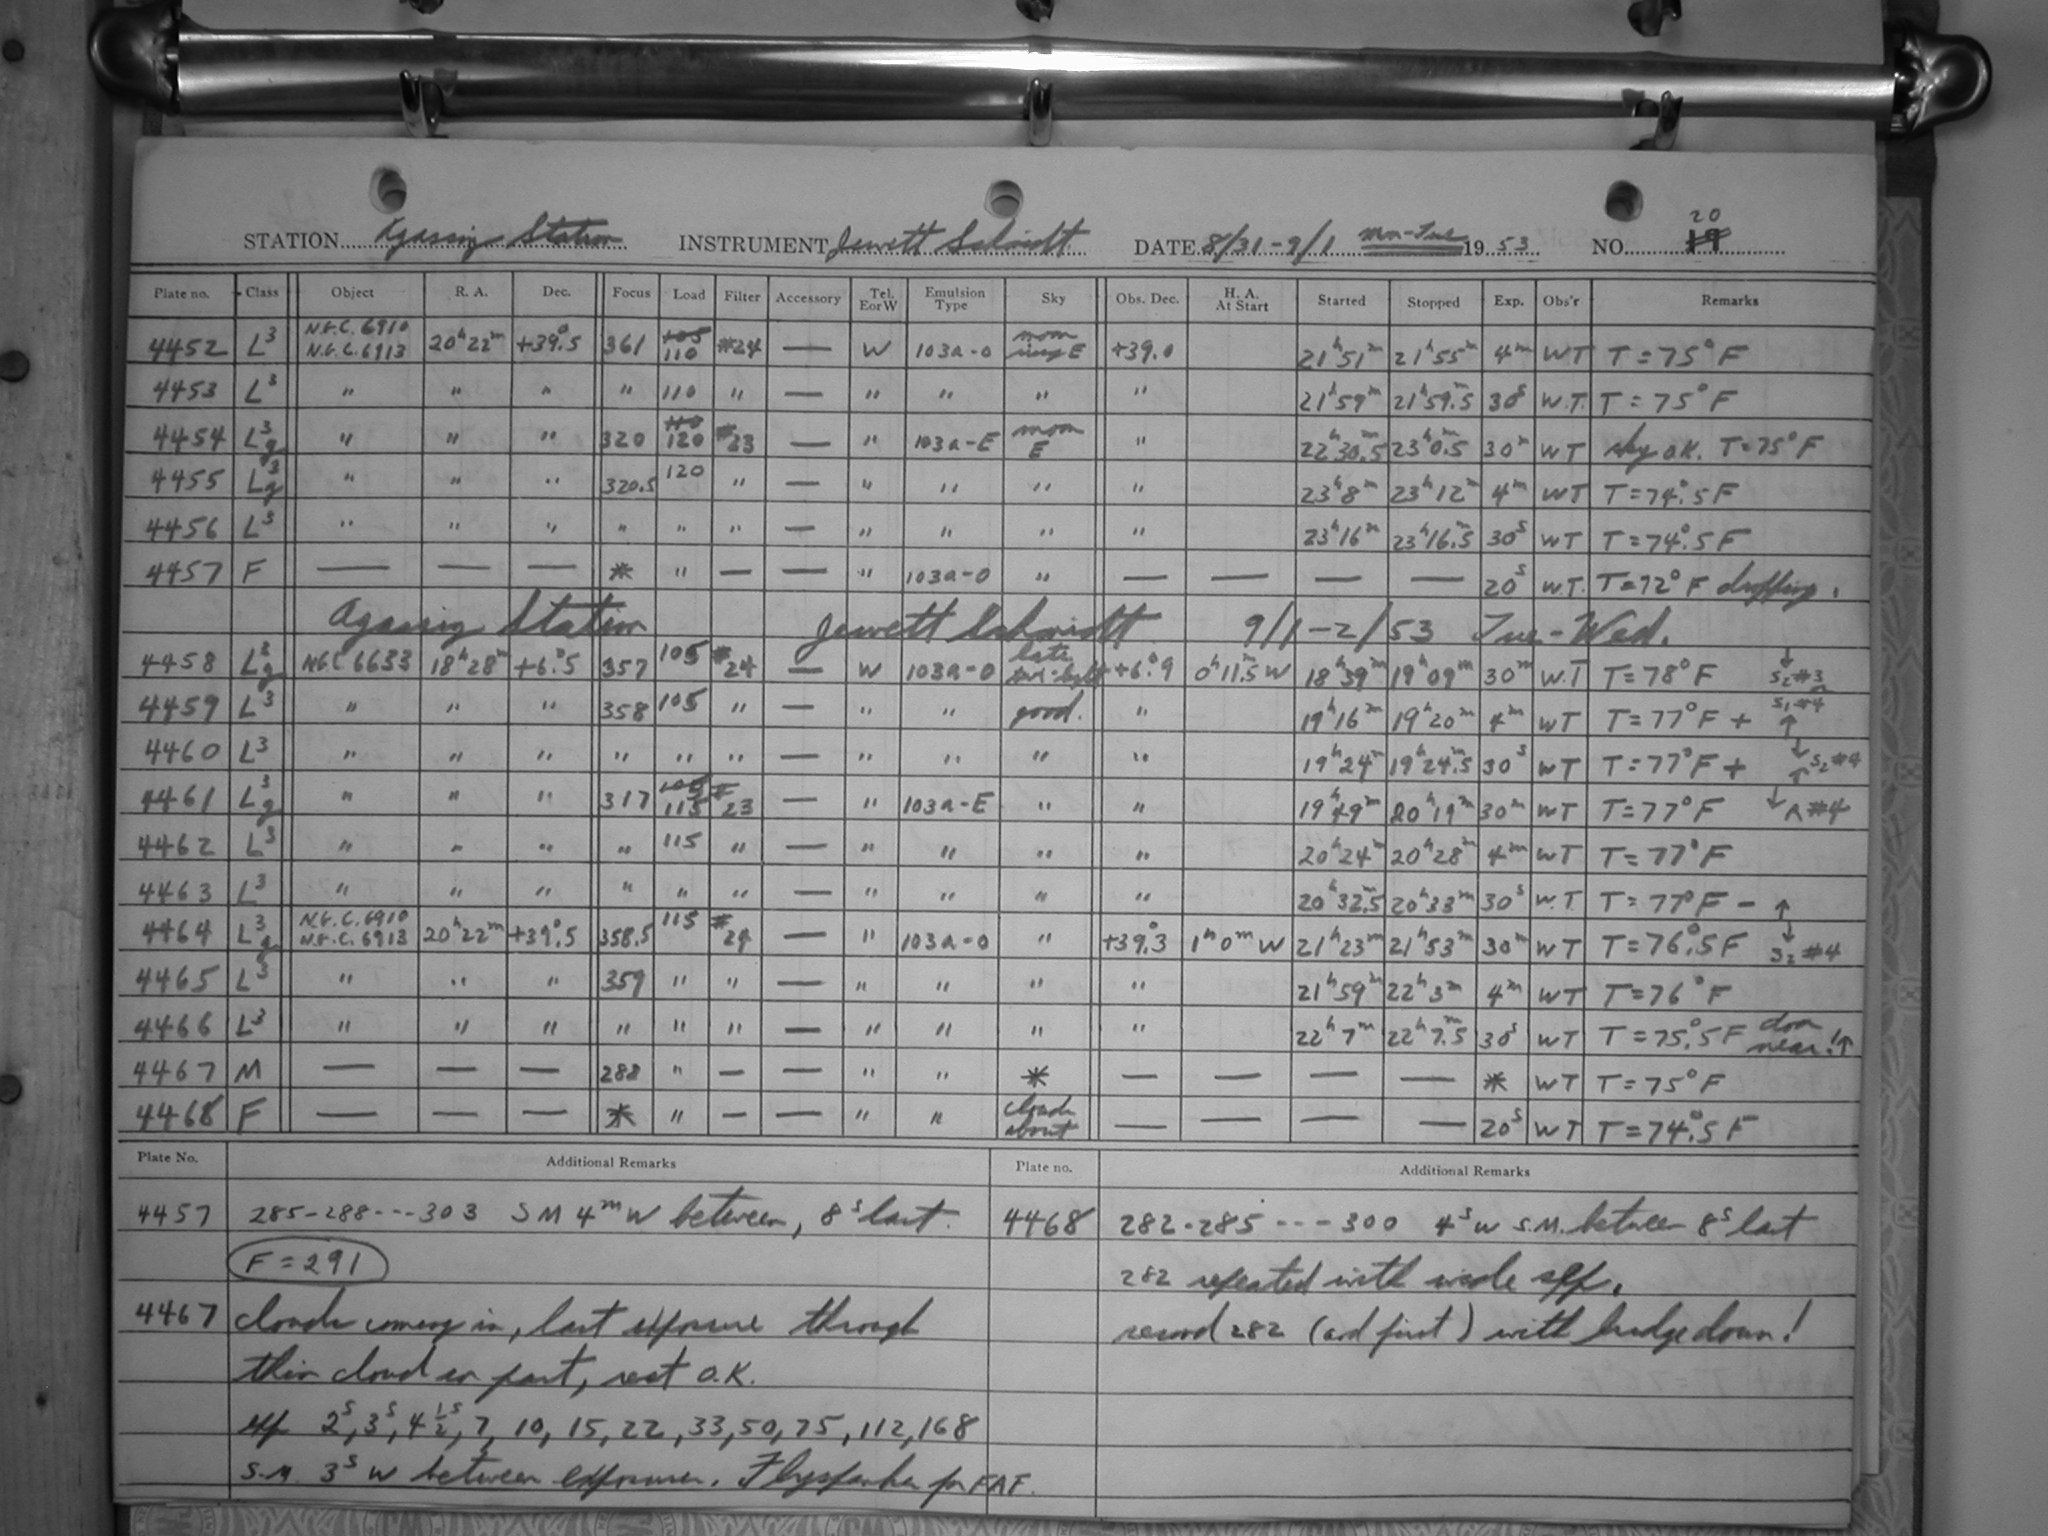 STATION Agassiz Station INSTRUMENT Jewett Schmidt DATE 8/31-9/1 Mon-Tue 1953 NO. 20 19
Plate no. Class Object R. A. Dec. Focus Load Filter Accessory Tel. E or W Emulsion Type Sky Obs. Dec. H. A. At Start Started Stopped Exp. Obs'r Remarks
4452 L³ N.G.C. 6910 N.G.C. 6913 20ʰ22ᵐ +39°.5 361 105 110 #24 — W 103a-O moon rising E +39.0 21ʰ51ᵐ 21ʰ55ᵐ 4ᵐ WT T=75°F
4453 L³ " " " " 110 " — " " " " 21ʰ59ᵐ 21ʰ59ᵐ.5 30ˢ W.T. T=75°F
4454 L³g " " " 320 110 120 #23 — " 103a-E moon E " 22ʰ30ᵐ.5 23ʰ0ᵐ.5 30ᵐ WT sky O.K. T=75°F
4455 L³g " " " 320.5 120 " — " " " " 23ʰ8ᵐ 23ʰ12ᵐ 4ᵐ WT T=74°.5F
4456 L³ " " " " " " — " " " " 23ʰ16ᵐ 23ʰ16ᵐ.5 30ˢ WT T=74°.5F
4457 F — — — * " — — " 103a-O " — — — — 20ˢ W.T. T=72°F dripping.
Agassiz Station Jewett Schmidt 9/1-2/53 Tue-Wed.
4458 L³g NGC 6633 18ʰ28ᵐ +6°.5 357 105 #24 — W 103a-O late twi-light +6°.9 0ʰ11ᵐ.5 W 18ʰ39ᵐ 19ʰ09ᵐ 30ᵐ W.T T=78°F ↓ S₂#3
4459 L³ " " " 358 105 " — " " good. " 19ʰ16ᵐ 19ʰ20ᵐ 4ᵐ WT T=77°F + S₁#4 ↑
4460 L³ " " " " " " — " " " " 19ʰ24ᵐ 19ʰ24ᵐ.5 30ˢ WT T=77°F + ↓ S₂#4 ↑
4461 L³g " " " 317 105 115 #23 — " 103a-E " " 19ʰ49ᵐ 20ʰ19ᵐ 30ᵐ WT T=77°F ↓ #4
4462 L³ " " " " 115 " — " " " " 20ʰ24ᵐ 20ʰ28ᵐ 4ᵐ WT T=77°F
4463 L³ " " " " " " — " " " " 20ʰ32ᵐ.5 20ʰ33ᵐ 30ˢ W.T. T=77°F – ↑
4464 L³g N.G.C. 6910 N.G.C. 6913 20ʰ22ᵐ +39°.5 358.5 115 #24 — " 103a-O " +39°.3 1ʰ0ᵐ W 21ʰ23ᵐ 21ʰ53ᵐ 30ᵐ WT T=76°.5F ↓ S₂#4
4465 L³ " " " 359 " " — " " " " 21ʰ59ᵐ 22ʰ3ᵐ 4ᵐ WT T=76°F
4466 L³ " " " " " " — " " " " 22ʰ7ᵐ 22ʰ7ᵐ.5 30ˢ WT T=75°.5F near! ↑
4467 M — — — 288 " — — " " * — — — — * WT T=75°F
4468 F — — — * " — — " " clouds about — — — — 20ˢ WT T=74°.5F
Plate No. Additional Remarks Plate no. Additional Remarks
4457 285-288---303 SM 4ᵐW between, 8ˢ last. 4468 282-285---300 4ˢ W S.M. between 8ˢ last
F=291 282 repeated with wide
4467 clouds coming in, last exposure through second 282 (and first) with down!
thin cloud in part, rest O.K.
exp 2ˢ, 3ˢ, 4½ˢ, 7, 10, 15, 22, 33, 50, 75, 112, 168
S.M. 3ˢ W between exposures. for FAF.